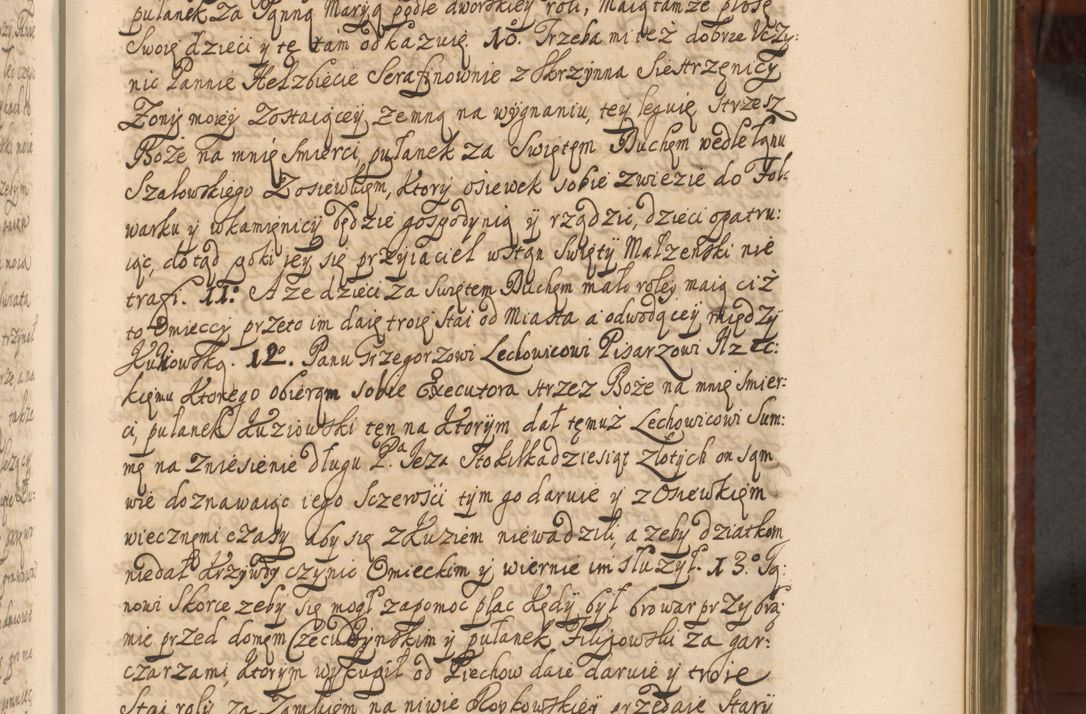 pułanek za Panną Maryą podle dworskiey roli, Maią tamże płosę
Swoię dzieci y tę tam odkazuię. 10. Trzeba mi też dobrze Uczy:
nic Pannie Helzbiecie Serafinownie z Skrzynna Siestrzęnicy
Żonię moiey Zostaiącey zemną na wygnaniu, tey leguię strzesz
Boże na mnię Smierci, pułanek za Swiętem Duchem wedle Panu
Szalowskiego Zosiewkiem, ktory osiewek sobie zwiezie do Fol:
warku y w kamięnicy będzie gospodynią y rządzic, dzieci opatru:
iąc, dotąd, poki iey się przyiaciel w stan Swięty Małzenski nie
trafi. 11° A że dzieci za Swiętem Duchem mało roley maią ciż
to Omieccy przeto im daię troię Stai od Miasta a odwodącey między
Kukowską. 12° Panu Grzegorzowi Lechowicowi Pisarzowi Rzec:
kiemu ktorego obieram sobie Executora strzez Boże na mnię smier:
ci, pułanek Kuziowski ten na ktorym dał temuż Lechowicowi Sum:
mę na Zniesienie długu P.a Jeza Stokilkadziesiąt Złotych on sam
wie doznawaiąc iego Sczerości tym go daruię y z Osiewkiem
wiecznemi czasy aby się z Kuziem niewadzili, a zeby dziatkom
niedał Krzywdy czynic Omieckim y wiernie im słuzył. 13° Ja:
nowi Skorce zeby się mogł zapomoc plac kędy był browar przy bra:
mie przed domem Czeczdyńskim y pułanek Filipowski za gar:
czarzami, ktorym wykupił od Piechow daię Daruię y troie
Stai roly za Zamkiem na niwie Popkowskiey przedaię Stary